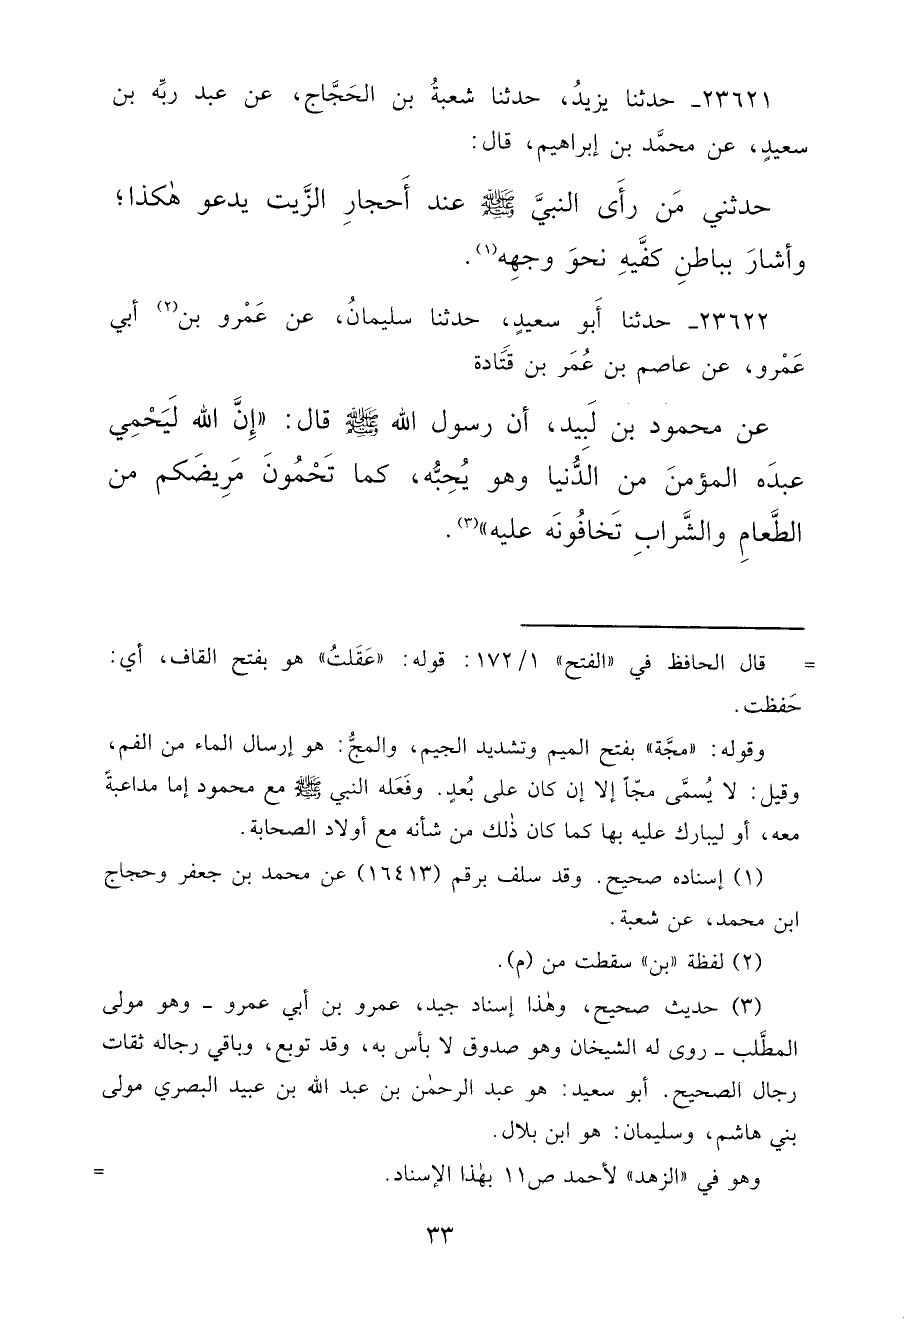 ٢٣٦٢١ـ حدثنا يزيدُ، حدثنا شعبةُ بن الحَجَّاج، عن عبد ربِّه بن
سعيدٍ، عن محمَّد بن إبراهيم، قال:
حدثني مَن رأَى النبيَّ ﷺ عند أَحجارِ الزَّيت يدعو هٰكذا؛
وأشارَ بباطنِ كفَّيهِ نحوَ وجهِه(١).
٢٣٦٢٢ـ حدثنا أَبو سعيدٍ، حدثنا سليمانُ، عن عَمْرو بن(٢) أبي
عَمْرو، عن عاصم بن عُمَر بن قَتَادة
عن محمود بن لَبِيد، أن رسول الله ﷺ قال: «إنَّ الله لَيَحْمِي
عبدَه المؤمنَ من الدُّنيا وهو يُحِبُّه، كما تَحْمُونَ مَرِيضَكم من
الطَّعامِ والشَّرابِ تَخافُونَه عليه»(٣).
= قال الحافظ في «الفتح» ١/ ١٧٢: قوله: «عَقَلتُ» هو بفتح القاف، أي:
حَفظت.
وقوله: «مجَّة» بفتح الميم وتشديد الجيم، والمجُّ: هو إرسال الماء من الفم،
وقيل: لا يُسمَّى مجّاً إلا إن كان على بُعدٍ. وفَعَله النبي ﷺ مع محمود إما مداعبةً
معه، أو ليبارك عليه بها كما كان ذٰلك من شأنه مع أولاد الصحابة.
(١) إسناده صحيح. وقد سلف برقم (١٦٤١٣) عن محمد بن جعفر وحجاج
ابن محمد، عن شعبة.
(٢) لفظة «بن» سقطت من (م).
(٣) حديث صحيح، وهٰذا إسناد جيد، عمرو بن أبي عمرو ـ وهو مولى
المطَّلب ـ روى له الشيخان وهو صدوق لا بأس به، وقد توبع، وباقي رجاله ثقات
رجال الصحيح. أبو سعيد: هو عبد الرحمٰن بن عبد الله بن عبيد البصري مولى
بني هاشم، وسليمان: هو ابن بلال.
وهو في «الزهد» لأحمد ص١١ بهٰذا الإسناد. =
٣٣